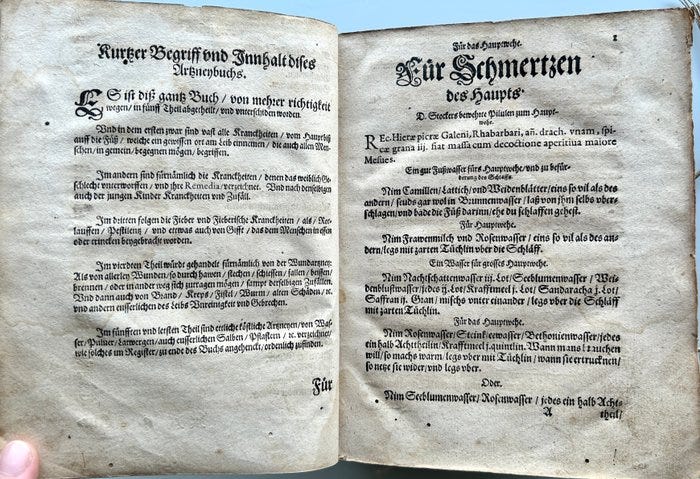 Kurtzer Begriff vnd Innhalt dises
Artzneybuchs.
ES ist diß gantz Buch / von mehrer richtigkeit
wegen / in fünff Theil abgetheilt / vnd vnterschiden worden.
Vnd in dem ersten zwar sind vast alle Kranckheiten / vom Haupt biß
auff die Füß / welche ein gewissen ort am Leib einnemen / die auch allen Men-
schen / in gemein / begegnen mögen / begriffen.
Im andern sind fürnämlich die Kranckheiten / denen das weiblich Ge-
schlecht vnterworffen / vnd ihre Remedia / verzeichnet. Vnd nach denselbigen
auch der jungen Kinder Kranckheiten vnd Zufäll.
Im dritten folgen die Fieber vnd Fieberische Kranckheiten / als /
lauffen / Pestilentz / vnd etwas auch von Gifft / das dem Menschen in essen
oder trincken beygebracht worden.
Im vierdten Theil würdt gehandelt fürnämlich von der Wundartzney:
Als von allerley Wunden / so durch hawen / stechen / schiessen / fallen / beissen /
brennen / oder in ander weg sich zutragen mögen / sampt derselbigen Zufällen.
Vnd dann auch von Brand / Kreps / Fistel / Wurm / alten Schäden / ꝛc.
vnd andern eusserlichen des Leibs Vnreinigkeit vnd Gebrechen.
Im fünfften vnd letsten Theil sind etliche köstliche Artzneyen / von Was-
ser / Pulfer / Latwergen / auch eusserlichen Salben / Pflastern / ꝛc. verzeichnet /
wie solches im Register / zu ende des Buchs angehenckt / ordenlich zufinden.
Für
Für das Hauptwehe.
1
Für Schmertzen
des Haupts.
D. Stockers bewehrte Pilulen zum Haupt-
wehe.
REc. Hieræ picræ Galeni, Rhabarbari, añ. drach. vnam, spi-
cæ grana iij. fiat massa cum decoctione aperitiua maiore
Mesues.
Ein gut Fußwasser fürs Hauptwehe / vnd zu befür-
derung des Schlaffs.
Nim Camillen / Lattich / vnd Weidenblätter / eins so vil als des
andern / seuds gar wol in Brunnenwasser / laß von jhm selbs vber-
schlagen / vnd bade die Füß darinn / ehe du schlaffen gehest.
Für Hauptwehe.
Nim Frawenmilch vnd Rosenwasser / eins so vil als des an-
dern / legs mit zarten Tüchlin vber die Schläff.
Ein Wasser für grosses Hauptwehe.
Nim Nachtschattenwasser iij. Lot / Seeblumenwasser / Wei-
denblustwasser / jedes ij. Lot / Krafftmeel j. Lot / Sandaracha j. Lot /
Saffran ij. Gran / mischs vnter einander / legs vber die Schläff
mit zarten Tüchlin.
Für das Hauptwehe.
Nim Rosenwasser / Steinkleewasser / Bethonienwasser / jedes
ein halb Achttheilin / Krafftmeel j. quintlin. Wann mans brauchen
will / so machs warm / legs vber mit Tüchlin / wann sie ertrucknen /
so netze sie wider / vnd legs vber.
Oder.
Nim Seeblumenwasser / Rosenwasser / jedes ein halb Acht-
A theil /